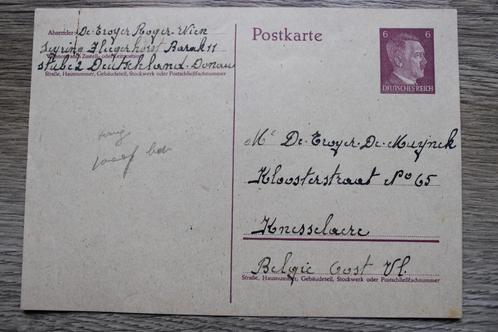 Absender: De-Croyer Roger-Wien
Seyring Fliegerhorst Barak 11
Wohnort, auch Zustell- oder Leitpostamt
Stube 2 Deutschland-Donau
Straße, Hausnummer, Gebäudeteil, Stockwerk oder Postschließfachnummer
Postkarte
6 6
DEUTSCHES REICH
Mr De-Croyer-De-Muynck
Kloosterstraat No 65
Knesselaere
België Oost Vl.
Straße, Hausnummer, Gebäudeteil, Stockwerk oder Postschließfachnummer